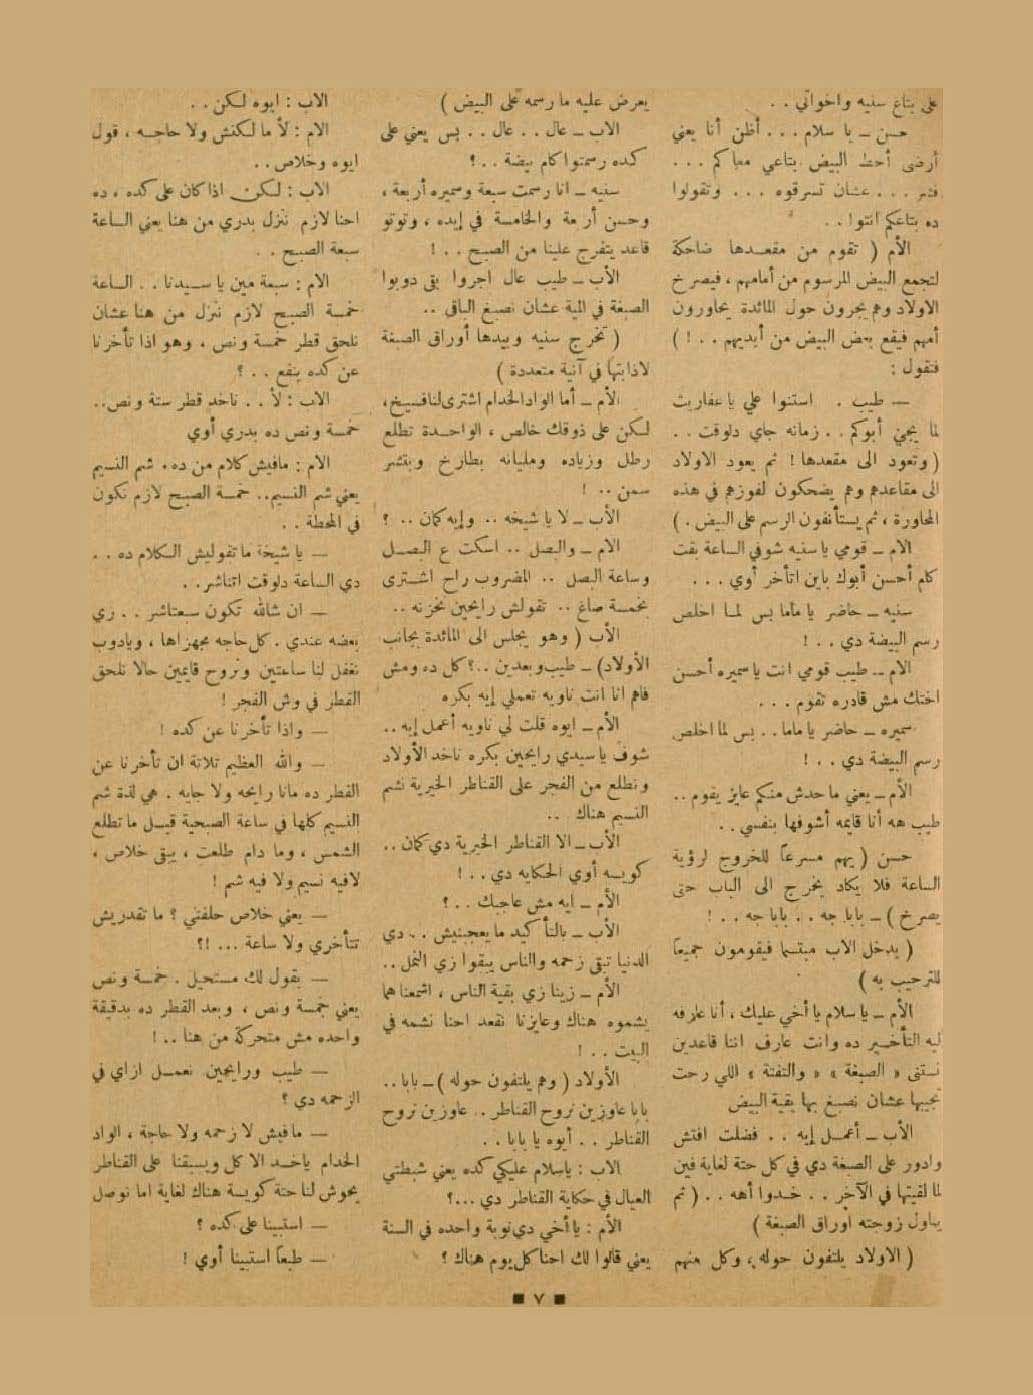 على بتاع سنيه واخواتي . .
حسن ــ يا سلام . . . أظن أنا يعني
أرضى أحط البيض بتاعي معاكم . . .
فشر . . . عشان تسرقوه . . . وتقولوا
ده بتاعكم انتوا . .
الأم ( تقوم من مقعدها ضاحكة
لتجمع البيض المرسوم من أمامهم ، فيصرخ
الاولاد وهم يجرون حول المائدة يحاورون
أمهم فيقع بعض البيض من أيديهم . . ! )
فتقول :
— طيب . استنوا علي يا عفاريت
لما يجيْ أبوكم . . زمانه جاي دلوقت . .
( وتعود الى مقعدها ! ثم يعود الاولاد
الى مقاعدهم وهم يضحكون لفوزهم في هذه
المحاورة ، ثم يستأنفون الرسم على البيض . )
الام ــ قومي يا سنيه شوفي الساعة بقت
كام أحسن أبوك باين اتأخر أوي . . .
سنيه ــ حاضر يا ماما بس لما اخلص
رسم البيضة دي . . !
الام ــ طيب قومي انت يا سميره أحسن
اختك مش قادره تقوم . . .
سميره ــ حاضر يا ماما . . بس لما اخلص
رسم البيضة دي . . !
الأم ــ يعني ماحدش منكم عايز يقوم . .
طيب هه أنا قايمه أشوفها بنفسي . .
حسن ( يهم مسرعاً للخروج لرؤية
الساعة فلا يكاد يخرج الى الباب حتى
يصرخ ) ــ بابا جه . . بابا جه . . !
( يدخل الاب مبتسما فيقومون جميعاً
للترحيب به )
الأم ــ يا سلام يا أخي عليك ، أنا عارفه
ليه التأخير ده وانت عارف اننا قاعدين
نستنى « الصبغة » « والتفتة » اللي رحت
تجيبها عشان نصبغ بها بقية البيض
الأب ــ أعمل إيه . . فضلت افتش
وادور على الصبغة دي في كل حتة لغاية فين
لما لقيتها في الآخر . . خدوا أهه . . ( ثم
يناول زوجته اوراق الصبغة )
( الاولاد يلتفون حوله ، وكل منهم
يعرض عليه ما رسمه على البيض )
الاب ــ عال . . عال . . بس يعني على
كده رسمتوا كام بيضة . . ؟
سنيه ــ انا رسمت سبعة وسميره أربعة ،
وحسن أربعة والخامسة في إيده ، وتوتو
قاعد يتفرج علينا من الصبح . . !
الأب ــ طيب عال اجروا بقى دوبوا
الصبغة في المية عشان نصبغ الباقي . .
( تخرج سنيه وبيدها أوراق الصبغة
لاذابتها في آنية متعددة )
الأم ــ أما الواد الخدام اشترى لنا فسيخ ،
لكن على ذوقك خالص ، الواحدة تطلع
رطل وزياده ومليانه بطارخ وبتشر
سمن . . !
الأب ــ لا يا شيخه . . وإيه كمان . . ؟
الام ــ والبصل . . اسكت ع البصل
وساعة البصل . . المضروب راح اشترى
بخمسة صاغ . . تقولش رايحين نخزنه . .
الأب ( وهو يجلس الى المائدة بجانب
الأولاد) ــ طيب وبعدين . . ؟ كل ده ومش
فاهم انا انت ناويه تعملي إيه بكره
الأم ــ ايوه قلت لي ناويه أعمل إيه . .
شوف يا سيدي رايحين بكره ناخد الأولاد
ونطلع من الفجر على القناطر الخيرية نشم
النسيم هناك . .
الأب ــ الا القناطر الخيرية دي كمان . .
كويسه أوي الحكايه دي . . !
الأم ــ ايه مش عاجبك . . ؟
الأب ــ بالتأكيد ما يعجبنيش . . دي
الدنيا تبقى زحمه والناس يبقوا زي النمل . .
الأم ــ زينا زي بقية الناس ، اشمعنا هما
يشموه هناك وعايزنا نقعد احنا نشمه في
البيت . . !
الأولاد ( وهم يلتفون حوله ) ــ بابا . .
بابا عاوزين نروح القناطر . . عاوزين نروح
القناطر . . أيوه يا بابا . .
الاب : ياسلام عليكي كده يعني شبطتي
العيال في حكاية القناطر دي . . . ؟
الأم : يا أخي دي نوبة واحده في السنة
يعني قالوا لك احنا كل يوم هناك ؟
الاب : ايوه لكن . .
الام : لأ مالكنش ولا حاجه ، قول
ايوه وخلاص . .
الاب : لكن اذا كان على كده ، ده
احنا لازم ننزل بدري من هنا يعني الساعة
سبعة الصبح . .
الام : سبعة مين يا سيدنا . . الساعة
خمسة الصبح لازم ننزل من هنا عشان
نلحق قطر خمسة ونص ، وهو اذا تأخرنا
عن كده ينفع . . ؟
الاب : لأ . . ناخد قطر ستة ونص . .
خمسة ونص ده بدري أوي
الام : مافيش كلام من ده . شم النسيم
يعني شم النسيم . . خمسة الصبح لازم نكون
في المحطة . .
— يا شيخة ما تقوليش الكلام ده . .
دي الساعة دلوقت اتناشر . .
— ان شالله تكون سعتاشر . . زي
بعضه عندي . كل حاجه مجهزاها ، ويادوب
نغفل لنا ساعتين ونروح قايمين حالا نلحق
القطر في وش الفجر !
— واذا تأخرنا عن كده !
— والله العظيم تلاتة ان تأخرنا عن
القطر ده مانا رايحه ولا جايه . هي لذة شم
النسيم كلها في ساعة الصبحية قبل ما تطلع
الشمس ، وما دام طلعت ، يبقى خلاص ،
لافيه نسيم ولا فيه شم !
— يعني خلاص حلفتي ؟ ما تقدريش
تتأخري ولا ساعة . . . !؟
— بقول لك مستحيل . خمسة ونص
يعني خمسة ونص ، وبعد القطر ده بدقيقة
واحده مش متحركة من هنا . . !
— طيب ورايحين نعمل ازاي في
الزحمه دي ؟
— مافيش لا زحمه ولا حاجة ، الواد
الخدام ياخد الاكل ويسبقنا على القناطر
يحوش لنا حتة كويسة هناك لغاية اما نوصل
— استبينا على كده ؟
— طبعاً استبينا أوي !
■ ٧ ■